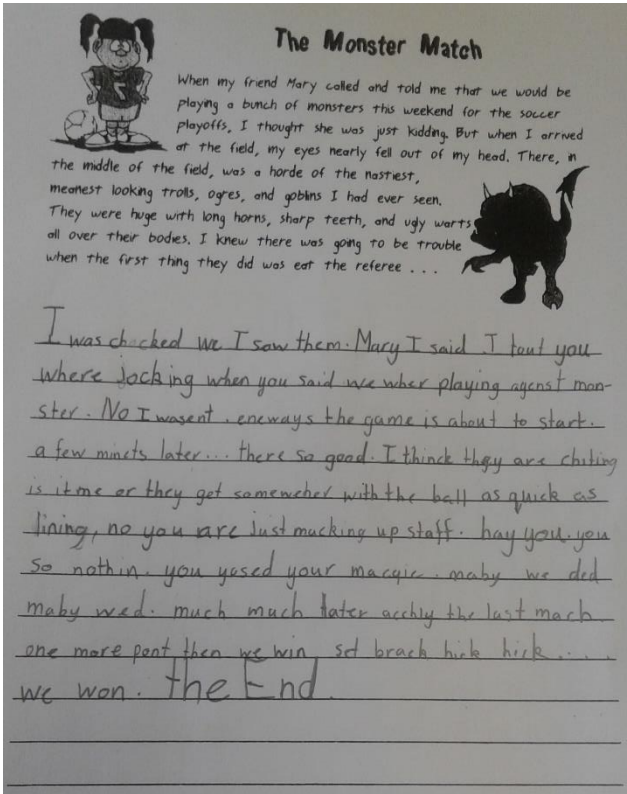 The Monster Match
When my friend Mary called and told me that we would be
playing a bunch of monsters this weekend for the soccer
playoffs, I thought she was just kidding. But when I arrived
at the field, my eyes nearly fell out of my head. There, in
the middle of the field, was a horde of the nastiest,
meanest looking trolls, ogres, and goblins I had ever seen.
They were huge with long horns, sharp teeth, and ugly warts
all over their bodies. I knew there was going to be trouble
when the first thing they did was eat the referee . . .
I was chocked we I saw them. Mary I said I tout you
where jocking when you said we wher playing agenst mon-
ster. No I wasent. eneways the game is about to start.
a few minets later... there so good. I thinck they are chiting
is it me or they get somewcher with the ball as quick as
lining, no you are just mucking up staff. hay you. you
so nothin. you yosed your macgic. maby we ded
maby wed. much much later acchly the last mach
one more pont then we win set brach hick hick....
we won. the End.